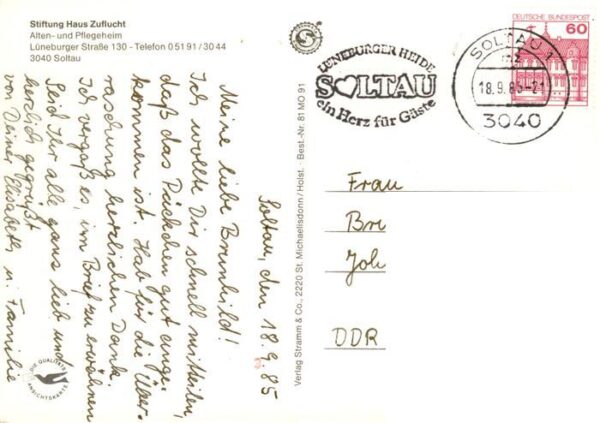 Stiftung Haus Zuflucht
Alten- und Pflegeheim
Lüneburger Straße 130 - Telefon 0 51 91 / 30 44
3040 Soltau
Soltau, den 18.9.85
Meine liebe Brunhild!
Ich wollte Dir schnell mitteilen,
daß das Päckchen gut ange-
kommen ist. Hab für die Über-
raschung herzlichen Dank.
Ich vergaß es, im Brief zu erwähnen
Seid Ihr alle ganz lieb und
herzlich gegrüßt
von Deiner Elisabeth u. Familie
DIE QUALITÄTS
ANSICHTSKARTE
Verlag Stramm & Co., 2220 St. Michaelisdonn/Holst. · Best.-Nr. 81 MO 91
LÜNEBURGER HEIDE
SOLTAU
ein Herz für Gäste
SOLTAU 1
mz
18.9.85-21
3040
DEUTSCHE BUNDESPOST
60
Frau
Bru
Joh
DDR